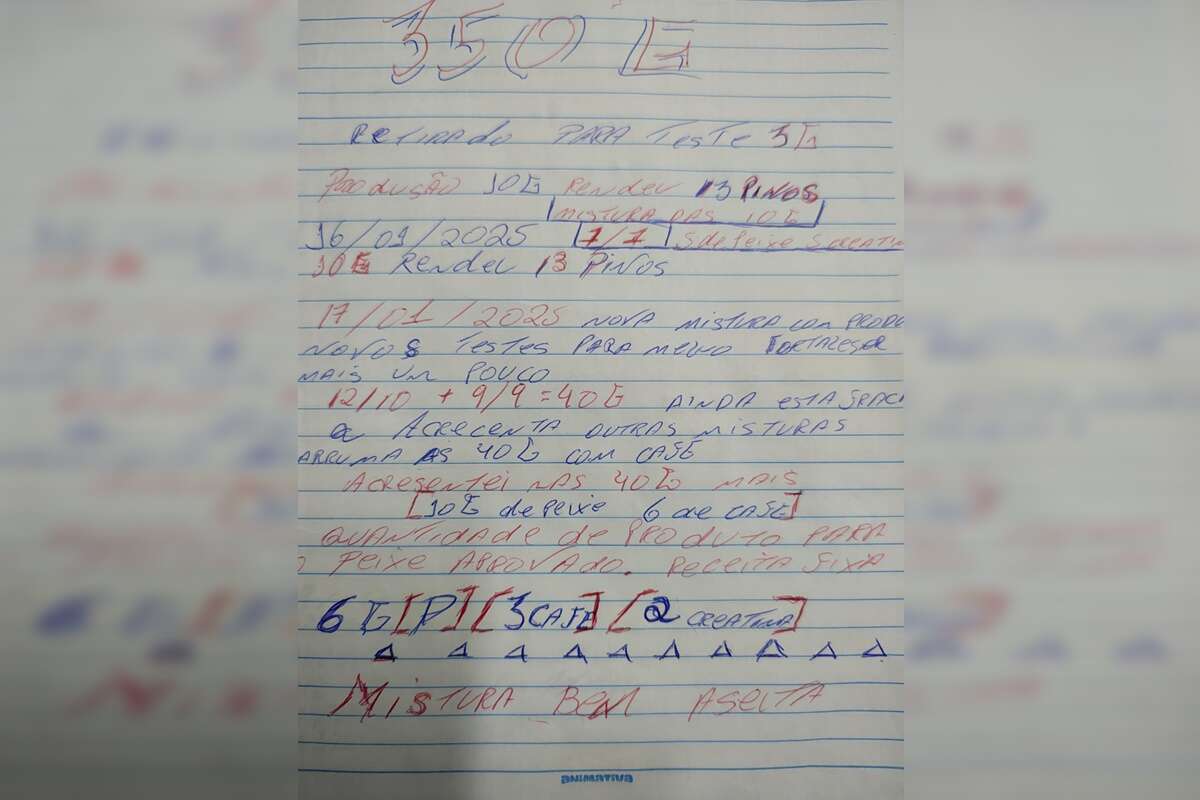 350 G
RETIRADO PARA TESTE 3G
PRODUSÃO 10G RENDEU 13 PINOS
MISTURA DAS 10G
16/01/2025 7/7 5 de Peixe 5 CREATIN
10G RENDEU 13 PINOS
17/01/2025 NOVA MISTURA COM PRODU
NOVOS TESTES PARA
MAIS UM POUCO
12/10 + 9/9 = 40G AINDA ESTA FRAC
ACRECENTA OUTRAS MISTURAS
ARRUMA AS 40G COM CAFE
ACRESENTEI NAS 40G MAIS
[10G de Peixe 6 de CAFE]
QUANTIDADE de PRODUTO PARA
O PEIXE APROVADO. RECEITA FIXA
6 G[P] [3 CAFE] [2 CREATINA]
MISTURA BEM ASEITA
ANIMATIVA